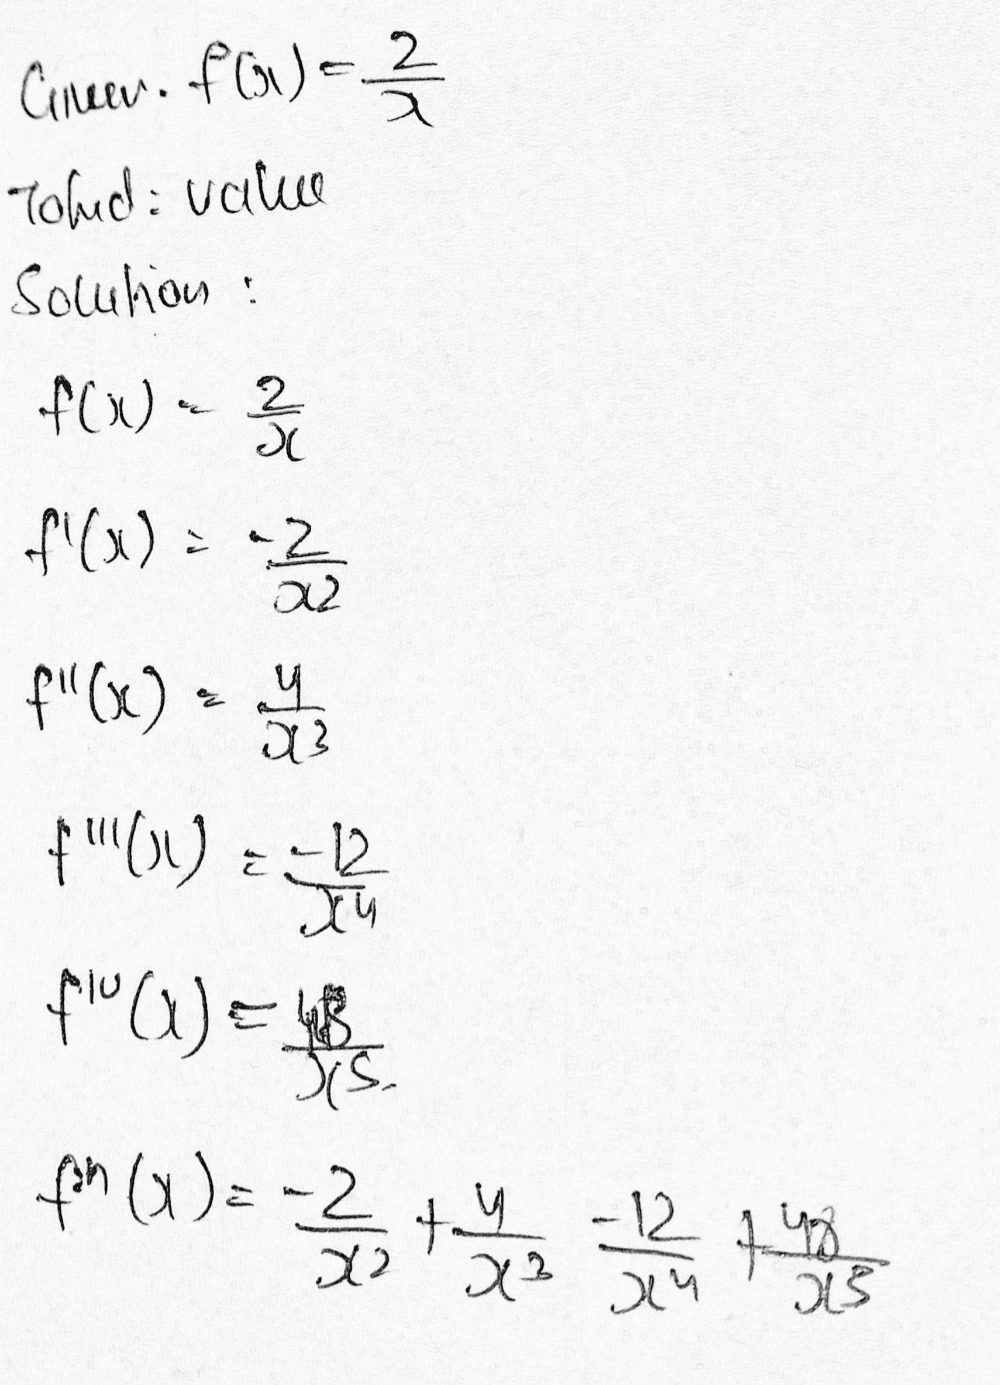 Given. f(x) = 2/x
Tofind: value
Solution :
f(x) = 2/x
f'(x) = -2/x2
f''(x) = 4/x3
f'''(x) = -12/x4
f^iv(x) = 48/x5.
(x) = -2/x2 + 4/x3 -12/x4 + 48/x5